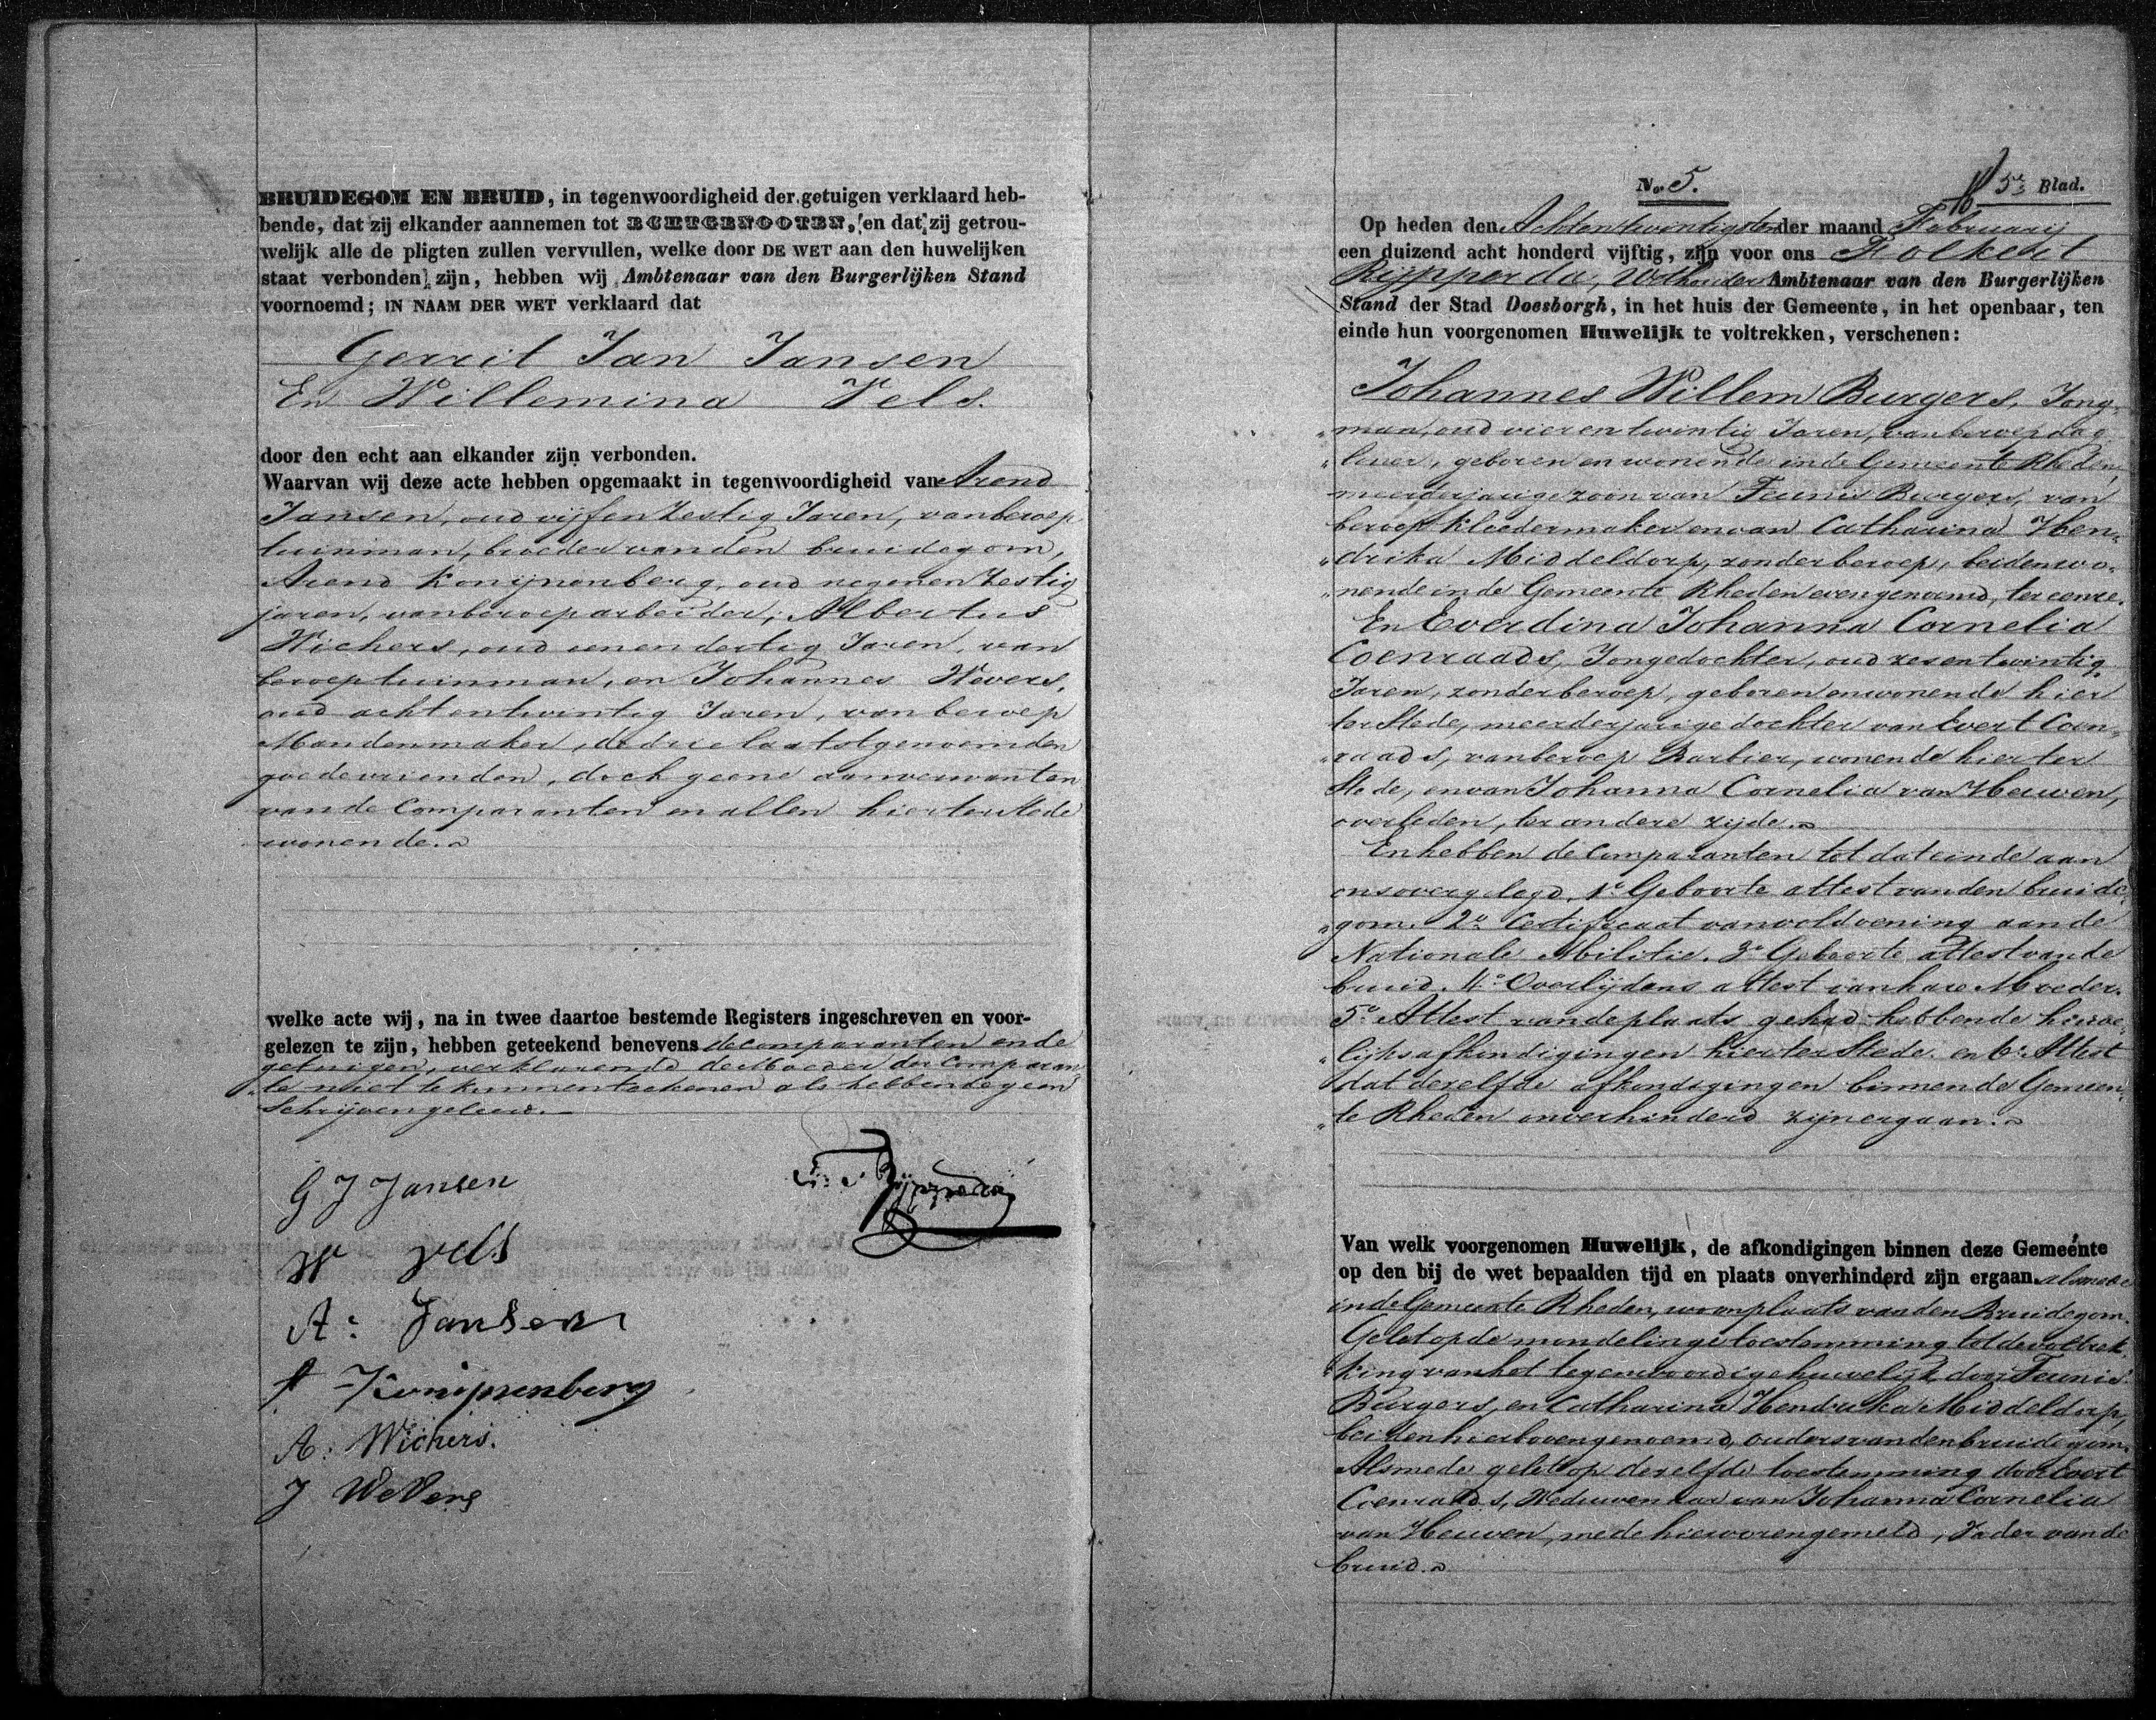 BRUIDEGOM EN BRUID, in tegenwoordigheid der getuigen verklaard heb-
bende, dat zij elkander aannemen tot ECHTGENOOTEN, en dat zij getrou-
welijk alle de pligten zullen vervullen, welke door DE WET aan den huwelijken
staat verbonden zijn, hebben wij Ambtenaar van den Burgerlijken Stand
voornoemd; IN NAAM DER WET verklaard dat
Gerrit Jan Jansen
En Willemina Vels.
door den echt aan elkander zijn verbonden.
Waarvan wij deze acte hebben opgemaakt in tegenwoordigheid van Arend
Jansen, oud vijf en Zestig Jaren, van beroep
tuinman, broeder van den bruidegom,
Arend Konijnenberg, oud negen en Zestig
jaren, van beroep arbeider, Albertus
Wichers, oud een en dertig Jaren, van
beroep tuinman, en Johannes Wevers,
oud acht en twintig Jaren, van beroep
Mandenmaker, de drie laatstgenoemden
goede vrienden, doch geene aanverwanten
van de Comparanten en allen hier ter Stede
wonende.
welke acte wij, na in twee daartoe bestemde Registers ingeschreven en voor-
gelezen te zijn, hebben geteekend benevens de comparanten en de
getuigen, verklarende de Moeder der Comparan-
te niet te kunnen teekenen als hebbende geen
Schrijven geleerd.
G J Jansen
W Vels
A: Jansen
A Konijnenberg
A: Wichers.
J Wevers
Rijpperda
No. 5.
5e Blad.
Op heden den Achtentwintigsten der maand Februarij
een duizend acht honderd vijftig, zijn voor ons Folkert
Rijpperda, Wethouder Ambtenaar van den Burgerlijken
Stand der Stad Doesborgh, in het huis der Gemeente, in het openbaar, ten
einde hun voorgenomen Huwelijk te voltrekken, verschenen:
Johannes Willem Burgers, Jong-
man, oud vier en twintig Jaren, van beroep dag-
looner, geboren en wonende in de Gemeente Rheden,
meerderjarige zoon van Teunis Burgers, van
beroep kleedermaker en van Catharina Hen-
drika Middeldorp, zonder beroep, beiden wo-
nende in de Gemeente Rheden evengenoemd, ter eenre.
En Everdina Johanna Cornelia
Coenraads, Jongedochter, oud zes en twintig
Jaren, zonder beroep, geboren en wonende hier
ter Stede, meerderjarige dochter van Evert Coen-
raads, van beroep Barbier, wonende hier ter
Stede, en van Johanna Cornelia van Heuven,
overleden, ter andere zijde.
En hebben de Comparanten tot dat einde aan
ons overgelegd, 1o Geboorte attest van den bruide-
gom. 2o Certificaat van voldoening aan de
Nationale Militie. 3o Geboorte attest van de
bruid. 4o Overlijdens attest van hare Moeder.
5o Attest van de plaats gehad hebbende huwe-
lijksafkondigingen hier ter Stede. en 6o Attest
dat derelfde afkondigingen binnen de Gemeen-
te Rheden onverhinderd zijn ergaan.
Van welk voorgenomen Huwelijk, de afkondigingen binnen deze Gemeente
op den bij de wet bepaalden tijd en plaats onverhinderd zijn ergaan. alsmede
in de Gemeente Rheden, woonplaats van den Bruidegom.
Gelet op de mondelinge toestemming tot de voltrek-
king van het tegenwoordige huwelijk door Teunis
Burgers, en Catharina Hendrika Middeldorp,
beiden hierboven genoemd, ouders van den bruidegom.
Alsmede gelet op derelfde toestemming door Evert
Coenraads, Weduwenaar van Johanna Cornelia
van Heuven, mede hiervoren gemeld, Vader van de
bruid.